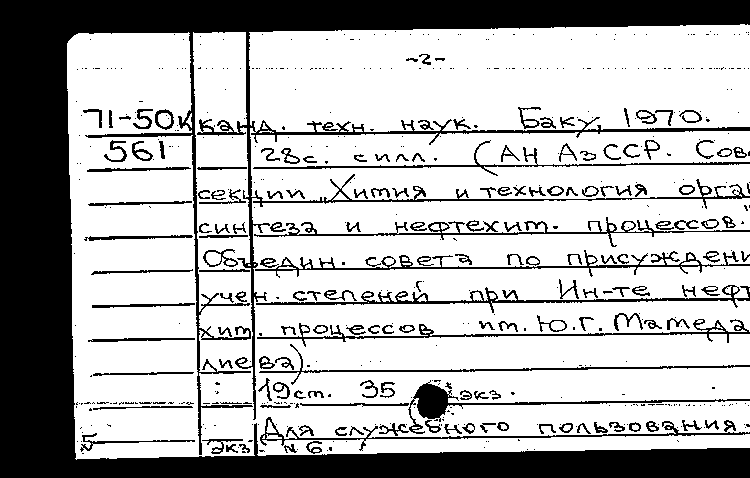 -2-
71-50к канд. техн. наук. Баку, 1970.
561 28с. с илл. (АН АзССР. Сов
секции „Химия и технология орга
синтеза и нефтехим. процессов."
Объедин. совета по присуждени
учен. степеней при Ин-те нефт
хим. процессов им. Ю.Г. Мамеда
лиева).
19см. 35 экз.
Для служебного пользования.
экз. N 6.